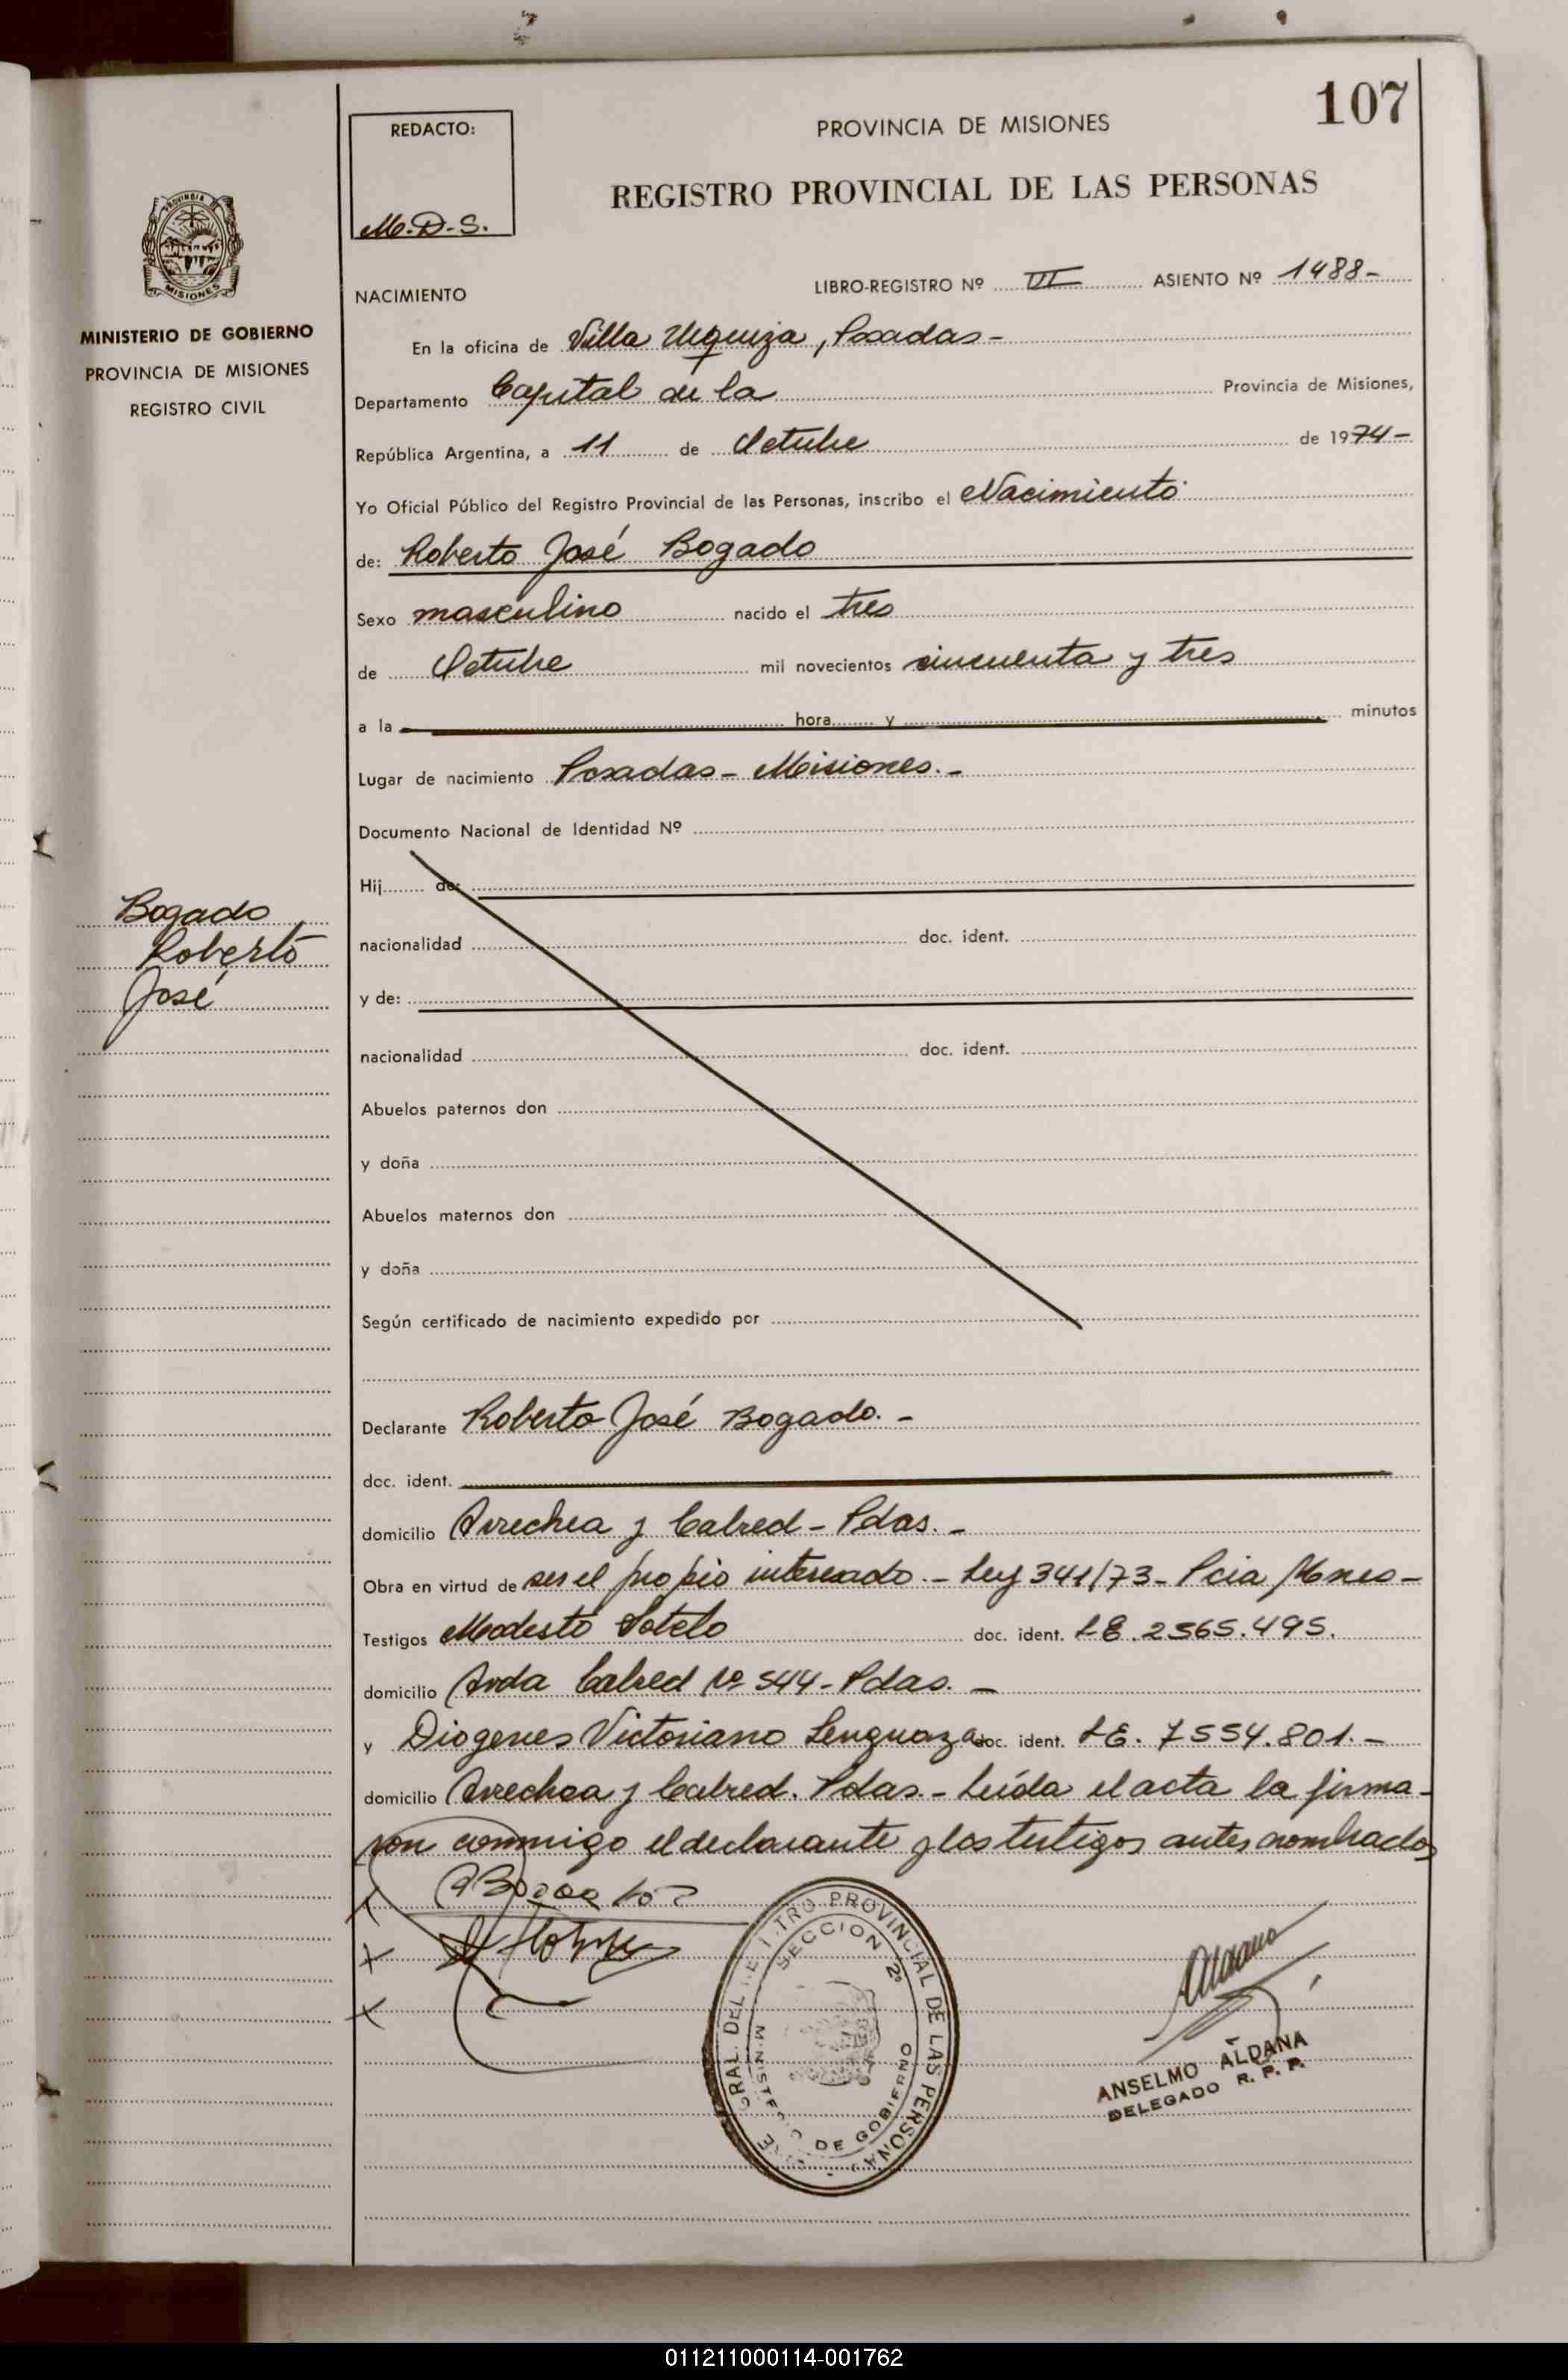 107
REDACTO:
M.D.S.
PROVINCIA DE MISIONES
REGISTRO PROVINCIAL DE LAS PERSONAS
MINISTERIO DE GOBIERNO
PROVINCIA DE MISIONES
REGISTRO CIVIL
NACIMIENTO
LIBRO-REGISTRO Nº VI ASIENTO Nº 1488-
En la oficina de Villa Urquiza, Posadas-
Departamento Capital de la Provincia de Misiones,
República Argentina, a 11 de Octubre de 1974-
Yo Oficial Público del Registro Provincial de las Personas, inscribo el Nacimiento
de: Roberto José Bogado
Sexo masculino nacido el tres
de Octubre mil novecientos cincuenta y tres
a la hora y minutos
Lugar de nacimiento Posadas - Misiones.-
Documento Nacional de Identidad Nº
Hij de:
nacionalidad doc. ident.
y de:
nacionalidad doc. ident.
Abuelos paternos don
y doña
Abuelos maternos don
y doña
Según certificado de nacimiento expedido por
Bogado
Roberto
José
Declarante Roberto José Bogado.-
doc. ident.
domicilio Arrechea y Cabred - Pdas.-
Obra en virtud de ser el propio interesado.- Ley 341/73- Pcia Mnes-
Testigos Modesto Sotelo doc. ident. LE. 2565.495.
domicilio Avda Cabred Nº 544- Pdas.-
y Diogenes Victoriano Lenguaza doc. ident. LE. 7554.801.-
domicilio Arrechea y Cabred. Pdas.- Leída el acta la firma-
ron conmigo el declarante y los testigos antes nombrados
SECCION 2ª
MINISTERIO DE GOBIERNO
GRAL. DEL REGISTRO PROVINCIAL DE LAS PERSONAS
Aldana
ANSELMO ALDANA
DELEGADO R. P. P.
011211000114-001762